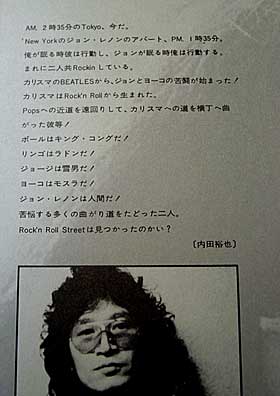 AM. 2時35分のTokyo、今だ。
New Yorkのジョン・レノンのアパート、PM. 1時35分。
俺が眠る時彼は行動し、ジョンが眠る時俺は行動する。
まれに二人共Rockinしている。
カリスマのBEATLESから、ジョンとヨーコの苦闘が始まった！
カリスマはRock'n Rollから生まれた。
Popsへの近道を遠回りして、カリスマへの道を横丁へ曲
がった彼等！
ポールはキング・コングだ！
リンゴはラドンだ！
ジョージは雪男だ！
ヨーコはモスラだ！
ジョン・レノンは人間だ！
苦悩する多くの曲がり道をたどった二人。
Rock'n Roll Streetは見つかったのかい？
〔内田裕也〕